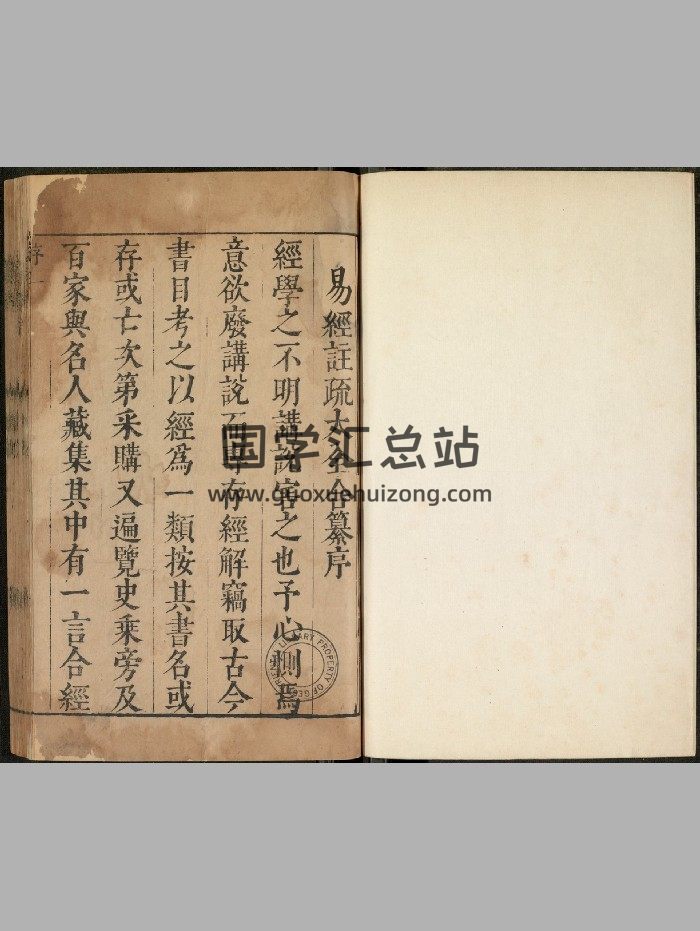 易經註疏大全合纂序
經學之不明講說害之也予心惻焉
意欲廢講說而專存經解竊取古今
書目考之以經爲一類按其書名或
存或亡次第采購又遍覽史乘旁及
百家與名人藏集其中有一言合經
序一
国学汇总站
www.guoxuehuizong.com
LIBRARY PROPERTY OF